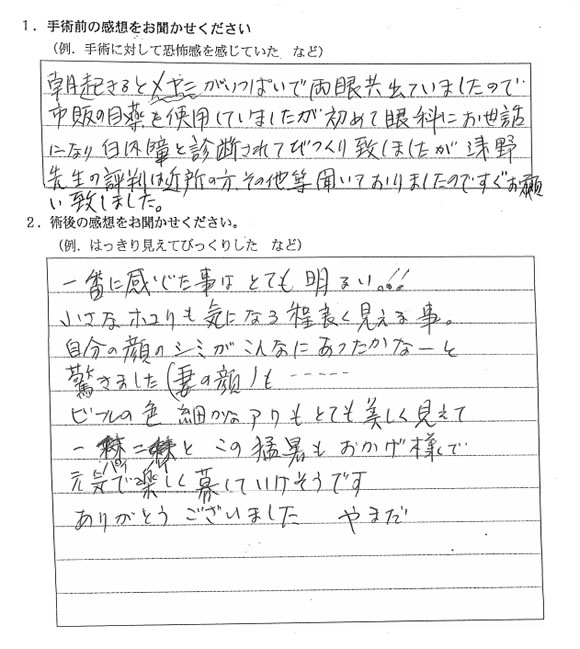 1. 手術前の感想をお聞かせください
(例．手術に対して恐怖感を感じていた　など)
朝起きるとメヤニがいっぱいで両眼共出ていましたので
市販の目薬を使用していましたが初めて眼科にお世話
になり白内障と診断されてびっくり致しましたが浅野
先生の評判は近所の方その他等聞いておりましたのですぐお願
い致しました。
2. 術後の感想をお聞かせください。
(例．はっきり見えてびっくりした　など)
一番に感じた事は とても 明るい!!
小さなホコリも気になる程良く見える事。
自分の顔のシミがこんなにあったかなーと
驚きました(妻の顔)も -----
ビールの色 細かなアワもとても美しく見えて
一杯二杯と この猛暑も おかげ様で
元気で楽しく暮していけそうです
ありがとうございました　やまだ